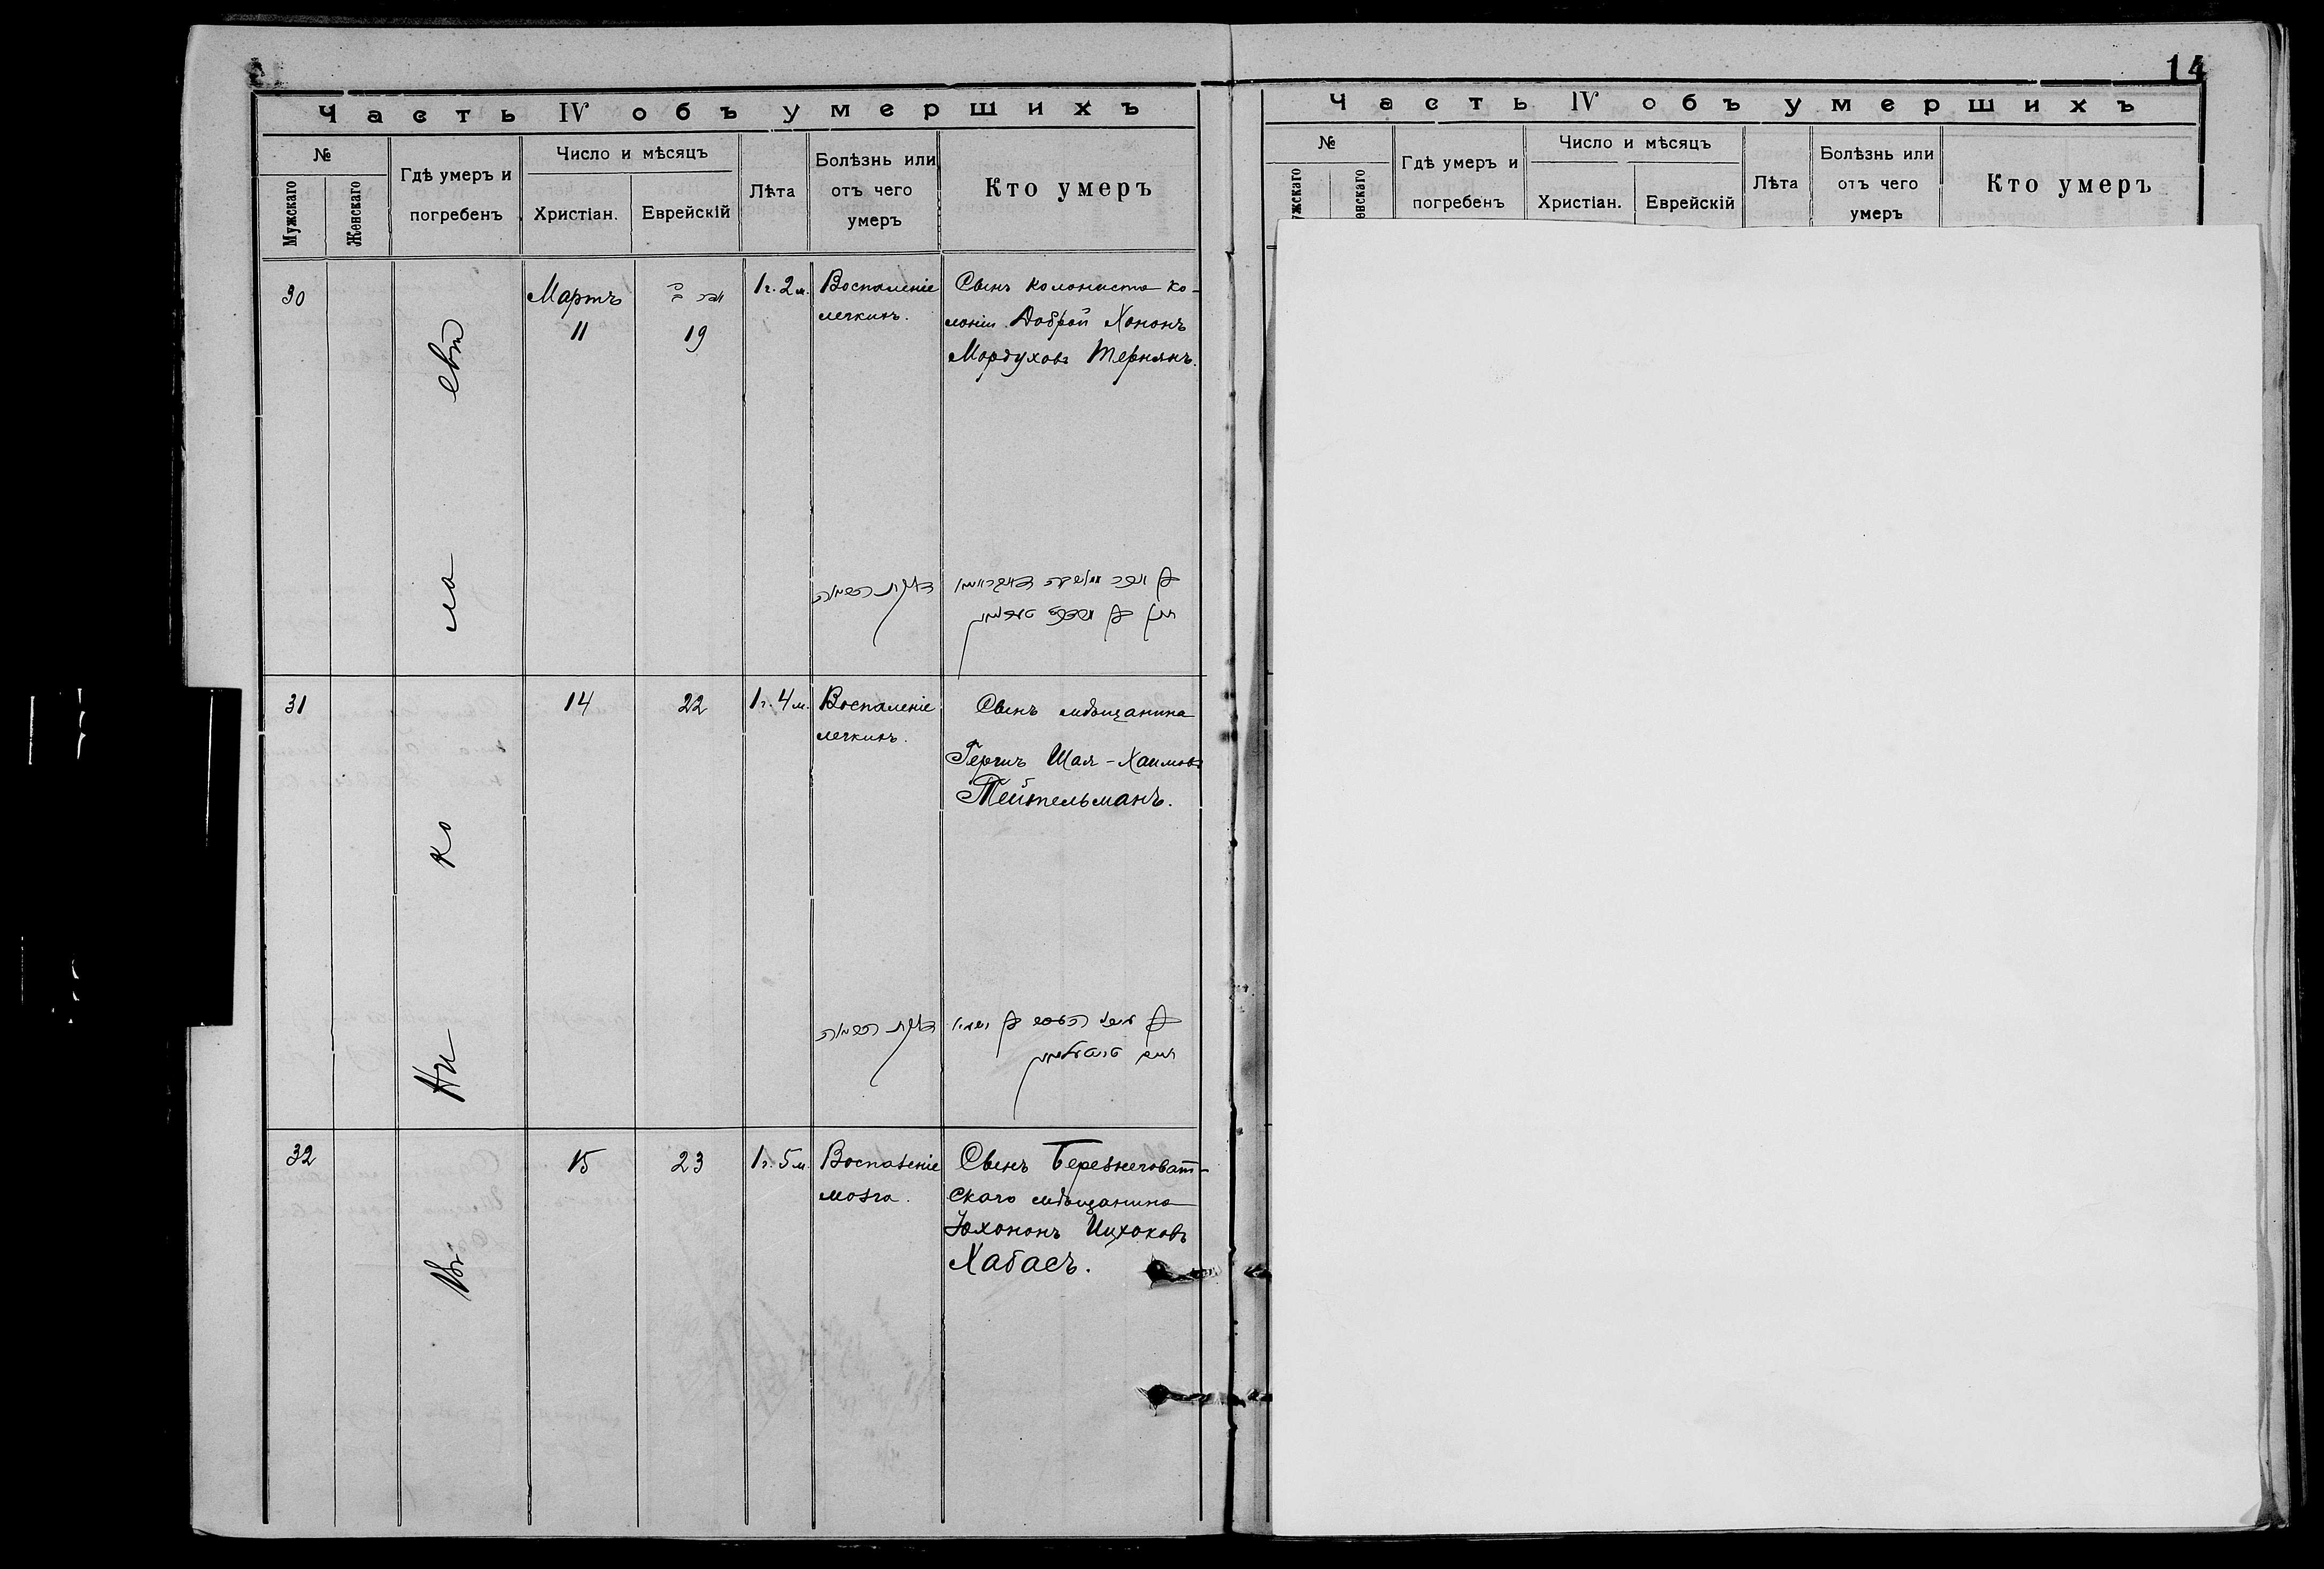 14
Часть IV объ умершихъ
№
Мужскаго
Женскаго
Гдѣ умеръ и
погребенъ
Число и мѣсяцъ
Христіан.
Еврейскій
Лѣта
Болѣзнь или
отъ чего
умеръ
Кто умеръ
30
Мартъ
11
19
1 г. 2 м.
Воспаленіе
легкихъ.
Сынъ колониста ко-
лоніи Доброй Хононъ
Мордуховъ
31
14
22
1 г. 4 м.
Воспаленіе
легкихъ.
Сынъ мѣщанина
Шая-Хаимовъ
Тейтельманъ.
32
15
23
1 г. 5 м.
Воспаленіе
мозга.
Сынъ Березнеговат-
скаго мѣщанина
Іохононъ Ицхоковъ
Хабасъ.
Въ Ни ко ла евѣ
Часть IV объ умершихъ
№
жскаго
енскаго
Гдѣ умеръ и
погребенъ
Число и мѣсяцъ
Христіан.
Еврейскій
Лѣта
Болѣзнь или
отъ чего
умеръ
Кто умеръ